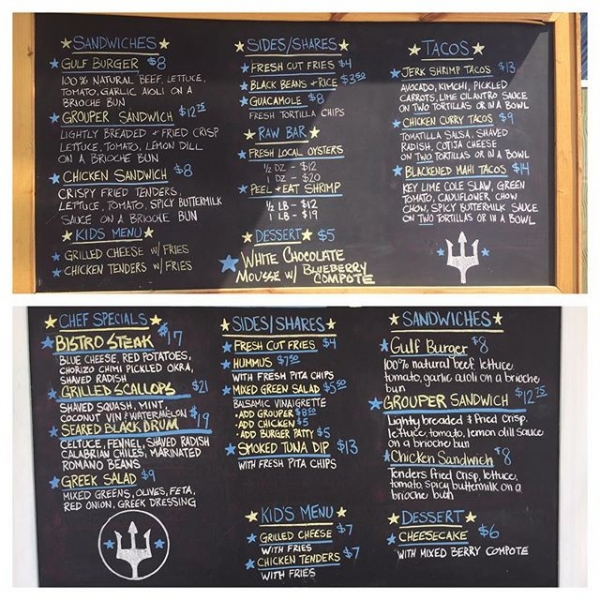 SANDWICHES
GULF BURGER $8
100% NATURAL BEEF, LETTUCE,
TOMATO, GARLIC AIOLI ON A
BRIOCHE BUN
GROUPER SANDWICH $12.75
LIGHTLY BREADED + FRIED CRISP
LETTUCE, TOMATO, LEMON DILL
ON A BRIOCHE BUN
CHICKEN SANDWICH $8
CRISPY FRIED TENDERS,
LETTUCE, TOMATO, SPICY BUTTERMILK
SAUCE ON A BRIOCHE BUN
KIDS MENU
GRILLED CHEESE W/ FRIES
CHICKEN TENDERS W/ FRIES
SIDES/SHARES
FRESH CUT FRIES $4
BLACK BEANS + RICE $3.50
GUACAMOLE $8
FRESH TORTILLA CHIPS
RAW BAR
FRESH LOCAL OYSTERS
1/2 DZ - $12
1 DZ - $20
PEEL + EAT SHRIMP
1/2 LB - $12
1 LB - $19
DESSERT $5
WHITE CHOCOLATE
MOUSSE W/ BLUEBERRY
COMPOTE
TACOS
JERK SHRIMP TACOS $13
AVOCADO, KIMCHI, PICKLED
CARROTS, LIME CILANTRO SAUCE
ON TWO TORTILLAS OR IN A BOWL
CHICKEN CURRY TACOS $9
TOMATILLA SALSA, SHAVED
RADISH, COTIJA CHEESE
ON TWO TORTILLAS OR IN A BOWL
BLACKENED MAHI TACOS $14
KEY LIME COLE SLAW, GREEN
TOMATO, CAULIFLOWER CHOW
CHOW, SPICY BUTTERMILK SAUCE
ON TWO TORTILLAS OR IN A BOWL
CHEF SPECIALS
BISTRO STEAK $17
BLUE CHEESE, RED POTATOES,
CHORIZO CHIMI PICKLED OKRA,
SHAVED RADISH
GRILLED SCALLOPS $21
SHAVED SQUASH, MINT,
COCONUT VIN & WATERMELON
SEARED BLACK DRUM $19
CELTUCE, FENNEL, SHAVED RADISH
CALABRIAN CHILES, MARINATED
ROMANO BEANS
GREEK SALAD $9
MIXED GREENS, OLIVES, FETA,
RED ONION, GREEK DRESSING
SIDES/SHARES
FRESH CUT FRIES $4
HUMMUS $7.50
WITH FRESH PITA CHIPS
MIXED GREEN SALAD $5.50
BALSAMIC VINAIGRETTE
- ADD GROUPER $8.50
- ADD CHICKEN $5
- ADD BURGER PATTY $5
SMOKED TUNA DIP $13
WITH FRESH PITA CHIPS
KID'S MENU
GRILLED CHEESE $7
WITH FRIES
CHICKEN TENDERS $7
WITH FRIES
SANDWICHES
Gulf Burger $8
100% natural beef lettuce
tomato, garlic aioli on a brioche
bun
GROUPER SANDWICH $12.75
Lightly breaded & fried Crisp.
lettuce, tomato, lemon dill sauce
on a brioche bun
Chicken Sandwich $8
Tenders fried Crisp, lettuce,
tomato, spicy buttermilk on a
brioche bun
DESSERT
CHEESECAKE $6
WITH MIXED BERRY COMPOTE